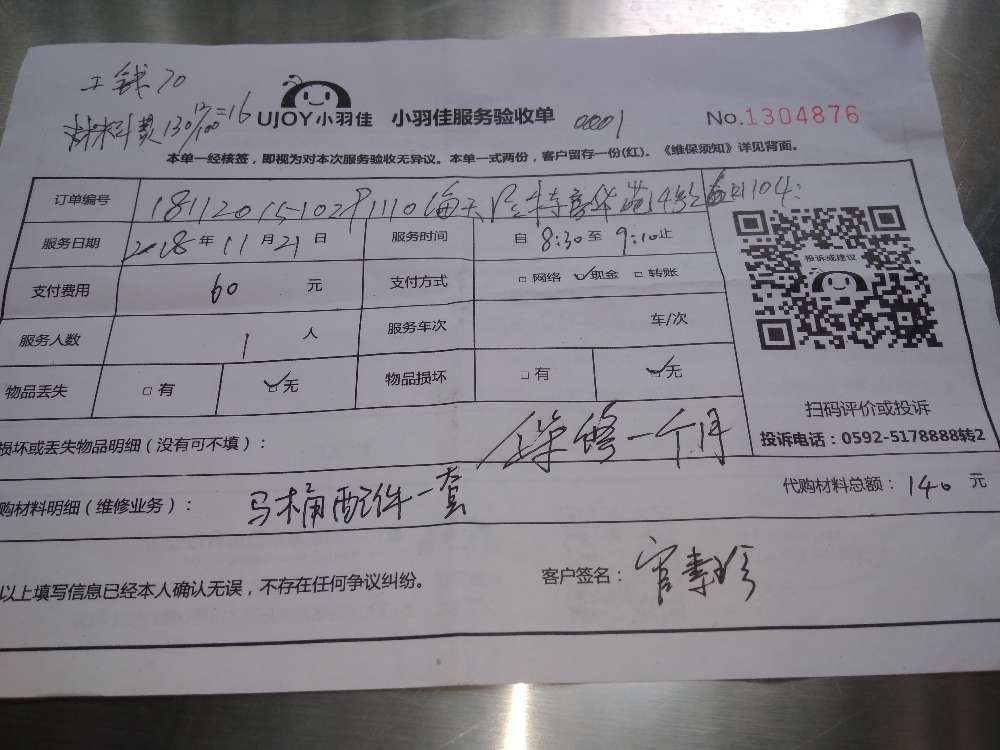 工钱70
材料费130
UJOY小羽佳 小羽佳服务验收单 0001 No.1304876
本单一经核签，即视为对本次服务验收无异议。本单一式两份，客户留存一份(红)。《维保须知》详见背面。
订单编号 104
服务日期 2018年11月21日 服务时间 自8:30至9:10止
投诉或建议
支付费用 60 元 支付方式 □网络 ☑现金 □转账
服务人数 1 人 服务车次 车/次
物品丢失 □有 ☑无 物品损坏 □有 ☑无
扫码评价或投诉
投诉电话：0592-5178888转2
损坏或丢失物品明细（没有可不填）： 保修一个月
购材料明细（维修业务）： 马桶配件一套 代购材料总额：140 元
以上填写信息已经本人确认无误，不存在任何争议纠纷。 客户签名：